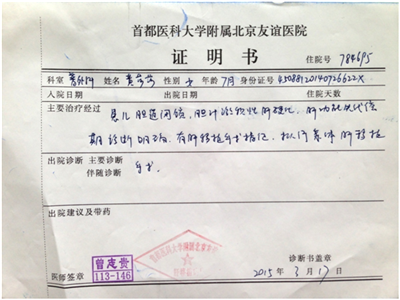 首都医科大学附属北京友谊医院
证明书
住院号 784695
科室 普外科 姓名 黄 性别 女 年龄 7月 身份证号 45088120140726622X
入院日期 出院日期 住院天数
主要治疗经过 患儿胆道闭锁,胆汁淤积性肝硬化,肝功能失代偿
期诊断明确,有肝移植手术指征,拟行亲体肝移植
出院诊断 主要诊断 手术
伴随诊断
出院建议及带药
医师签章
曾志贵
113-146
首都医科大学附属北京友谊医院
诊断书盖章
2015年3月17日